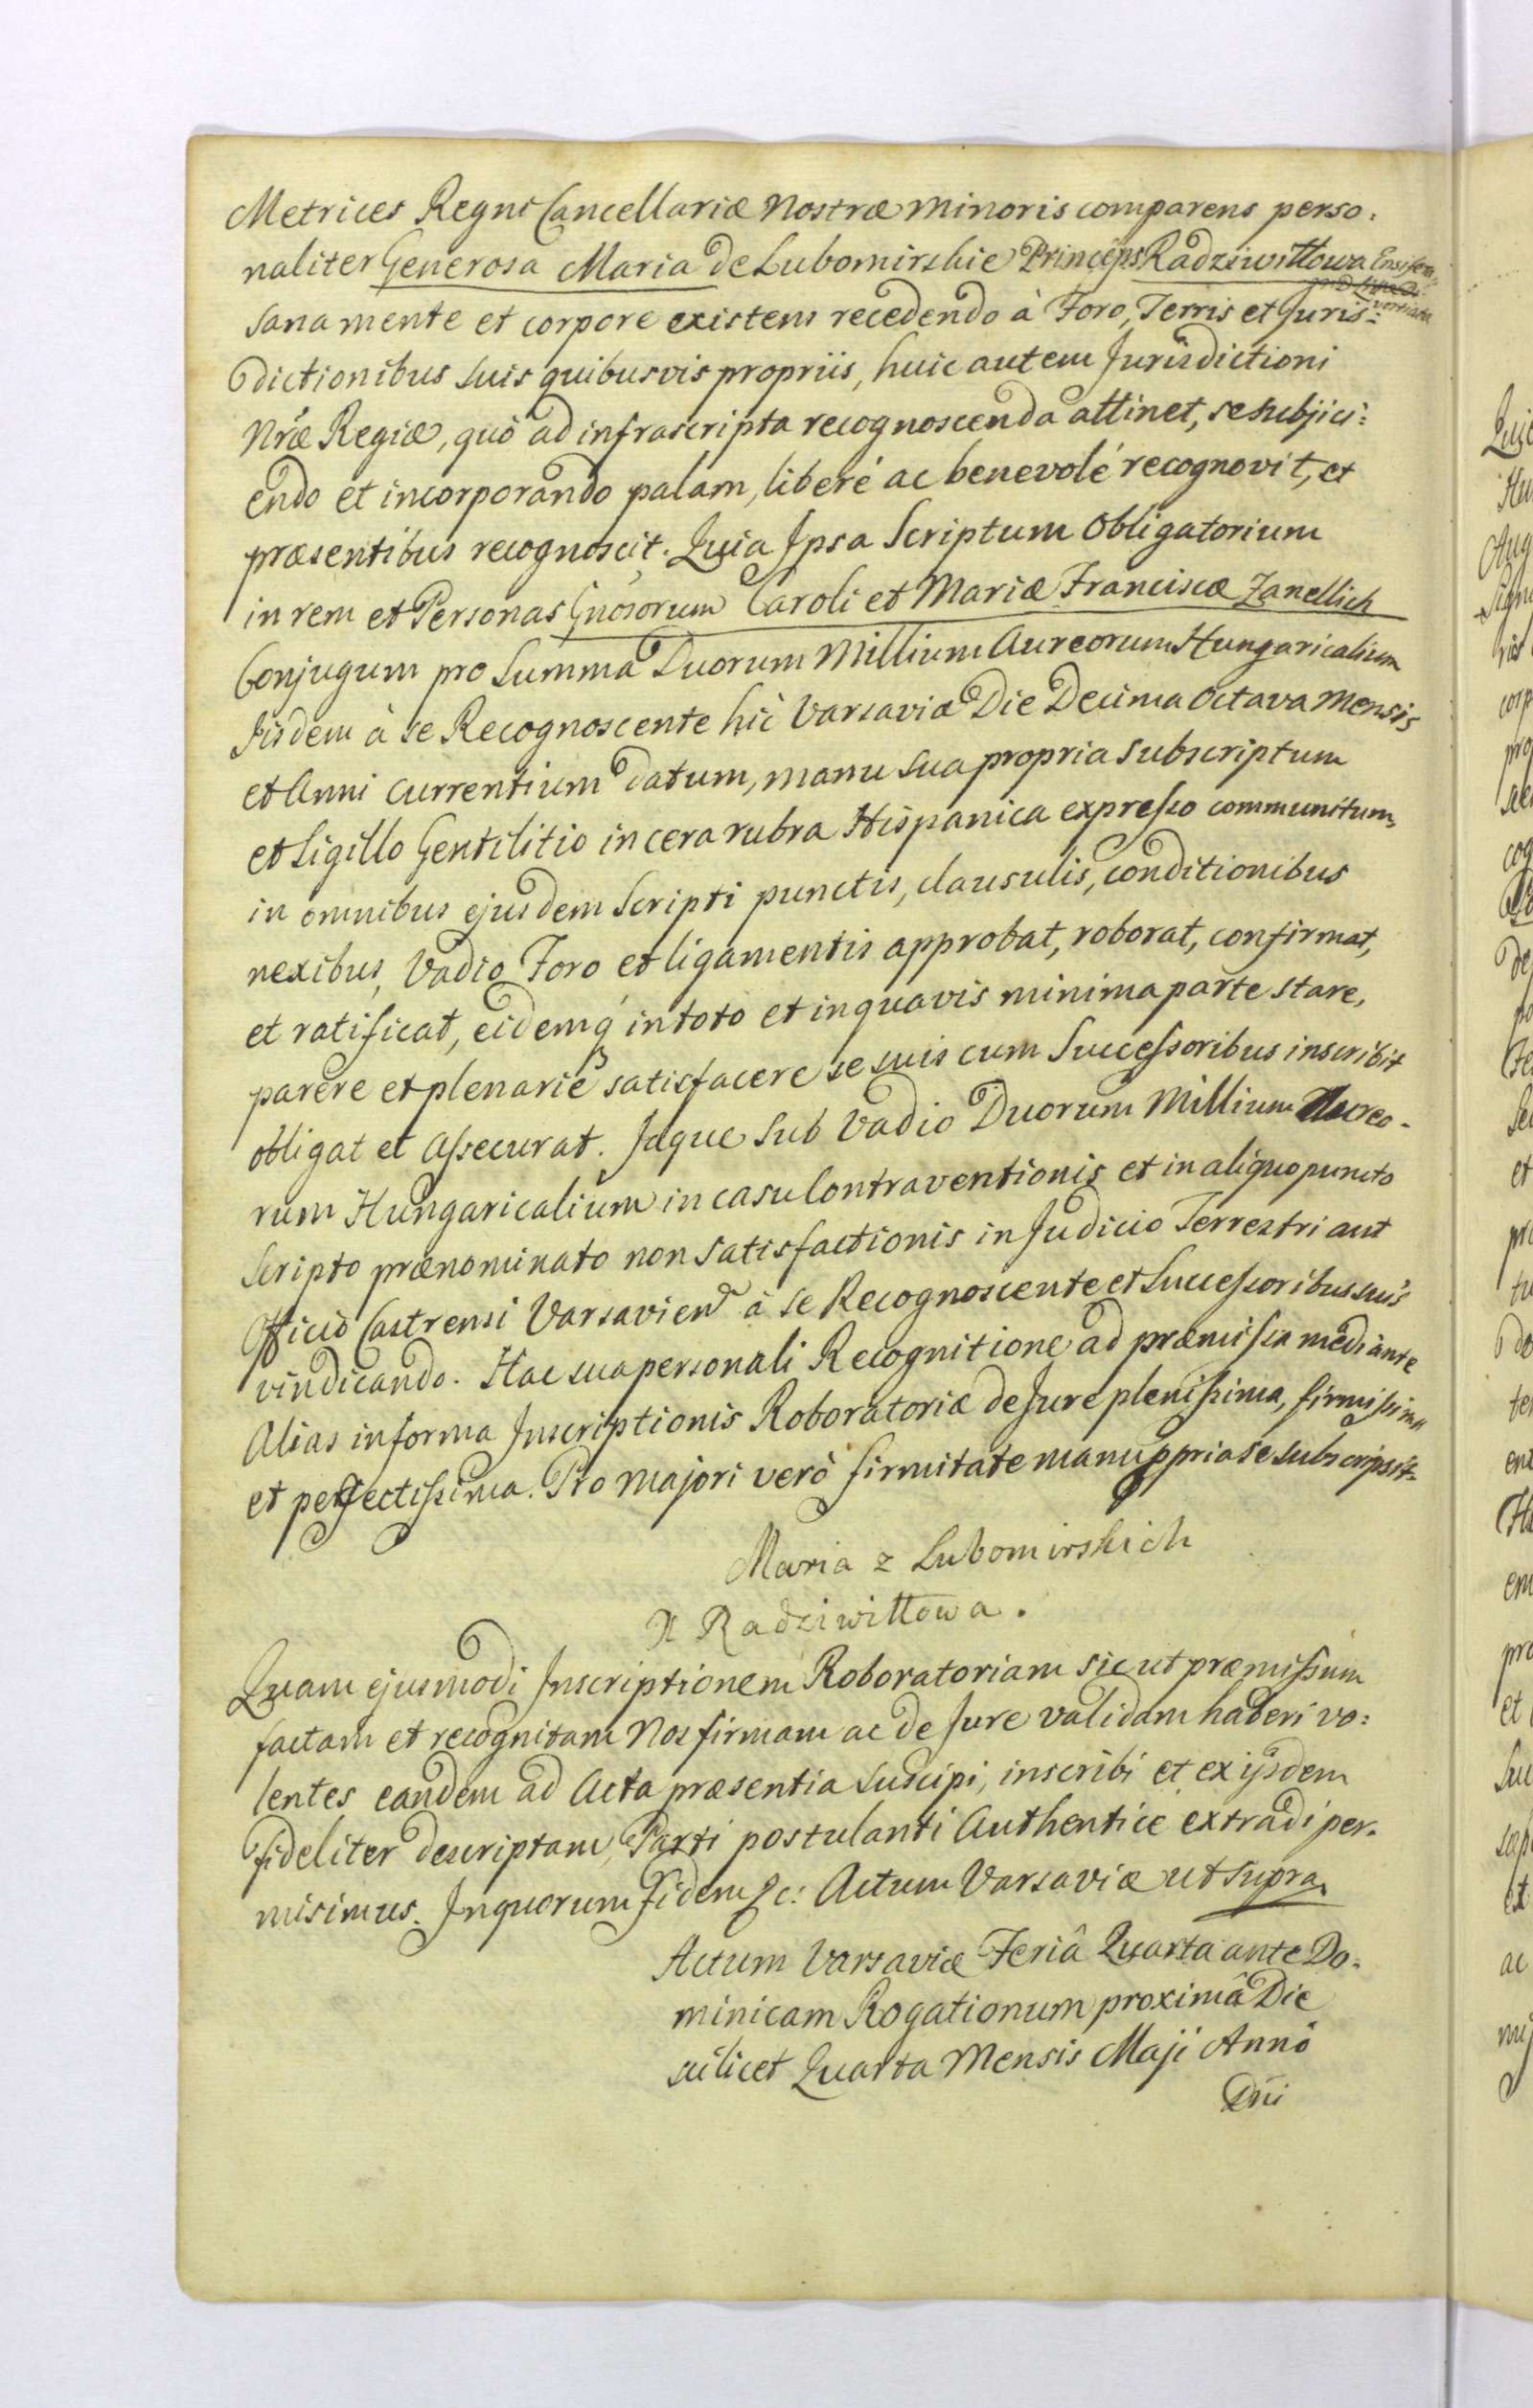 Metrices Regni Cancellariæ Nostræ Minoris comparens perso:
naliter Generosa Maria de Lubomirskie Princeps Radziwiłłowa Ensifera
Sana mente et corpore existens recedendo à Foro, Terris et Juris:
dictionibus suis quibusvis propriis, huic autem Jurisdictioni
Nræ Regiæ, quò ad infrascripta recognoscenda attinet, se subjici:
endo et incorporando palàm, liberé ac benevolé recognovit, et
præsentibus recognoscit. Quia Ipsa Scriptum Obligatorium
in rem et Personas Gnosorum Caroli et Mariæ Franciscæ Zanellich
Conjugum pro Summa Duorum Millium Aureorum Hungaricalium
Jisdem à se Recognoscente hìc Varsaviæ Die Decima Octava Mensis
et Anni currentium datum, manu sua propria subscriptum
et Sigillo Gentilitio in cera rubra Hispanica expresso communitum,
in omnibus ejusdem Scripti punctis, clausulis, conditionibus
nexibus, Vadio Foro et ligamentis approbat, roborat, confirmat,
et ratificat, eidemq in toto et in quavis minima parte stare,
parere et plenarie satisfacere se suis cum Successoribus inscribit
obligat et assecurat. Idque sub Vadio Duorum Millium Aureo-
rum Hungaricalium in casu Contraventionis et in aliquo puncto
Scripto prænominato non satisfactionis in Judicio Terrestri aut
Officio Castrensi Varsavien à se Recognoscente et Successoribus suis
vindicando. Hac sua personali Recognitione ad præmissa mediante
Alias in forma Inscriptionis Roboratoriæ de Jure plenissima, firmissima
et perfectissima. Pro majori verò firmitate manu ppria se subscripsit.
Maria z Lubomirskich
X Radziwiłłowa.
Quam ejusmodi Inscriptionem Roboratoriam sic ut præmissum
factam et recognitam Nos firmam ac de Jure validam haberi vo:
lentes eandem ad Acta præsentia suscipi, inscribi et ex ijsdem
fideliter descriptam, Parti postulanti Authenticè extradi per-
misimus. In quorum Fidem &c: Actum Varsaviæ ut supra
Actum Varsaviæ Feriâ Quarta ante Do-
minicam Rogationum proximâ Die
scilicet Quarta Mensis Maji Annô
Dni